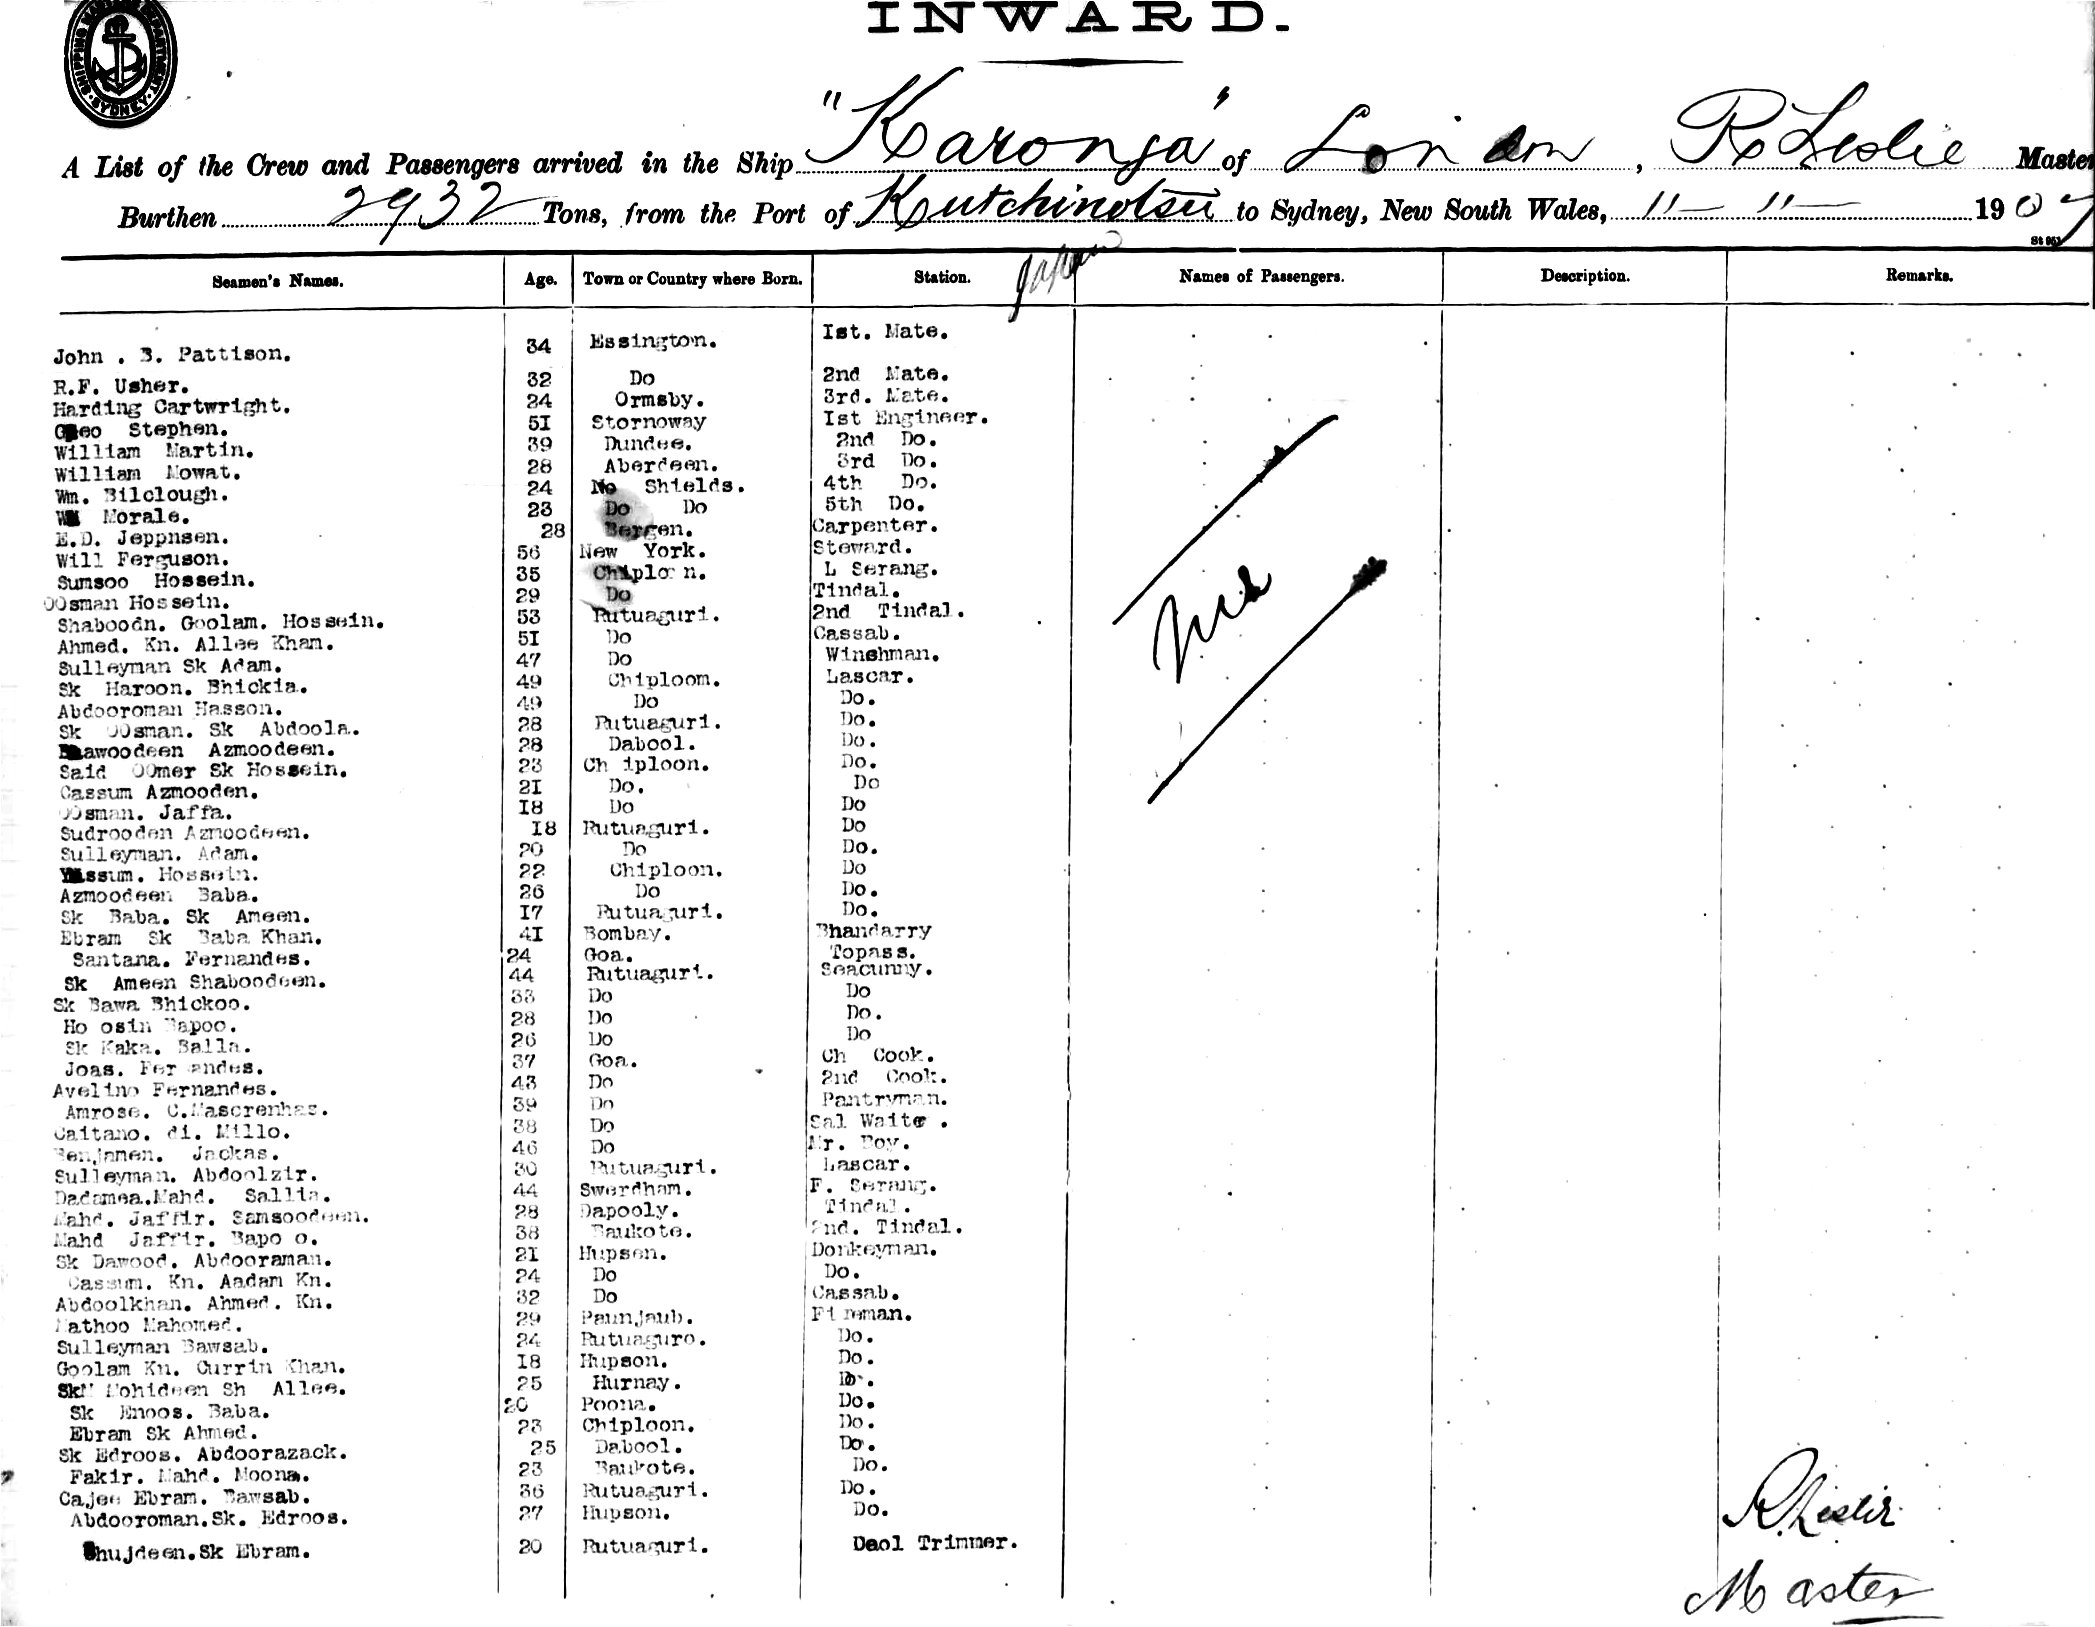 SHIPPING MASTER'S DEPARTMENT SYDNEY
INWARD.
A List of the Crew and Passengers arrived in the Ship "Karonga" of London, R Leslie Master
Burthen 2932 Tons, from the Port of Kutchinotsu to Sydney, New South Wales, 11 - 11 - 1907
Japan
Seamen's Names. Age. Town or Country where Born. Station. Names of Passengers. Description. Remarks.
John . B. Pattison. 34 Essington. Ist. Mate.
R.F. Usher. 32 Do 2nd Mate.
Harding Cartwright. 24 Ormsby. 3rd. Mate.
Geo Stephen. 5I Stornoway Ist Engineer.
William Martin. 39 Dundee. 2nd Do.
William Mowat. 28 Aberdeen. 3rd Do.
Wm. Bilclough. 24 No Shields. 4th Do.
Morale. 23 Do Do 5th Do.
E.D. Jeppnsen. 28 Bergen. Carpenter.
Will Ferguson. 56 New York. Steward.
Sumsoo Hossein. 35 Chiploon. L Serang.
OOsman Hossein. 29 Do Tindal.
Shaboodn. Goolam. Hossein. 53 Rutuaguri. 2nd Tindal.
Ahmed. Kn. Allee Kham. 5I Do Cassab.
Sulleyman Sk Adam. 47 Do Winshman.
Sk Haroon. Bhickia. 49 Chiploom. Lascar.
Abdooroman Hasson. 49 Do Do.
Sk OOsman. Sk Abdoola. 28 Rutuaguri. Do.
Dawoodeen Azmoodeen. 28 Dabool. Do.
Said OOmer Sk Hossein. 23 Ch iploon. Do.
Cassum Azmooden. 2I Do. Do
OOsman. Jaffa. I8 Do Do
Sudrooden Azmoodeen. I8 Rutuaguri. Do
Sulleyman. Adam. 20 Do Do.
ssum. Hossein. 22 Chiploon. Do
Azmoodeen Baba. 26 Do Do.
Sk Baba. Sk Ameen. I7 Rutuaguri. Do.
Ebram Sk Baba Khan. 4I Bombay. Bhandarry
Santana. Fernandes. 24 Goa. Topass.
Sk Ameen Shaboodeen. 44 Rutuaguri. Seacunny.
Sk Bawa Bhickoo. 33 Do Do
Ho osin Bapoo. 28 Do Do.
Sk Kaka. Balla. 26 Do Do
Joas. Fer andes. 37 Goa. Ch Cook.
Avelino Fernandes. 43 Do 2nd Cook.
Amrose. C.Mascrenhas. 39 Do Pantryman.
Caitano. di. Millo. 38 Do Sal Waite .
Benjamen. Jackas. 46 Do Mr. Boy.
Sulleyman. Abdoolzir. 30 Rutuaguri. Lascar.
Dadamea.Mahd. Sallia. 44 Swerdham. F. Serang.
Mahd. Jaffir. Samsoodeen. 28 Dapooly. Tindal.
Mahd Jaffir. Bapo o. 38 Baukote. 2nd. Tindal.
Sk Dawood. Abdooraman. 2I Hupsen. Donkeyman.
Cassum. Kn. Aadam Kn. 24 Do Do.
Abdoolkhan. Ahmed. Kn. 32 Do Cassab.
Nathoo Mahomed. 29 Paunjaub. Fireman.
Sulleyman Bawsab. 24 Rutuaguro. Do.
Goolam Kn. Currin Khan. I8 Hupson. Do.
Sk Mohideen Sh Allee. 25 Hurnay. Do.
Sk Enoos. Baba. 20 Poona. Do.
Ebram Sk Ahmed. 23 Chiploon. Do.
Sk Edroos. Abdoorazack. 25 Dabool. Do.
Fakir. Mahd. Moona. 23 Baukote. Do.
Cajee Ebram. Bawsab. 36 Rutuaguri. Do.
Abdooroman.Sk. Edroos. 27 Hupson. Do.
Shujdeen.Sk Ebram. 20 Rutuaguri. Deol Trimmer.
R. Leslie
Master